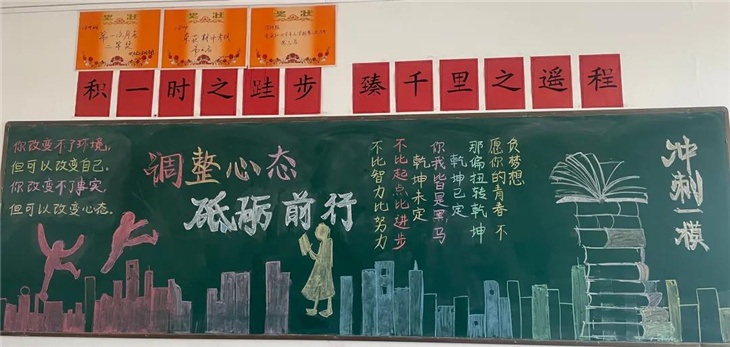 奖状
第一次月考
二等奖
奖状
奖状
积一时之跬步 臻千里之遥程
你改变不了环境,
但可以改变自己。
你改变不了事实,
但可以改变心态。
调整心态
砥砺前行
不比智力比努力
不比起点比进步
乾坤未定
你我皆是黑马
乾坤已定
那偏扭转乾坤
愿你的青春 不
负梦想
冲刺一模